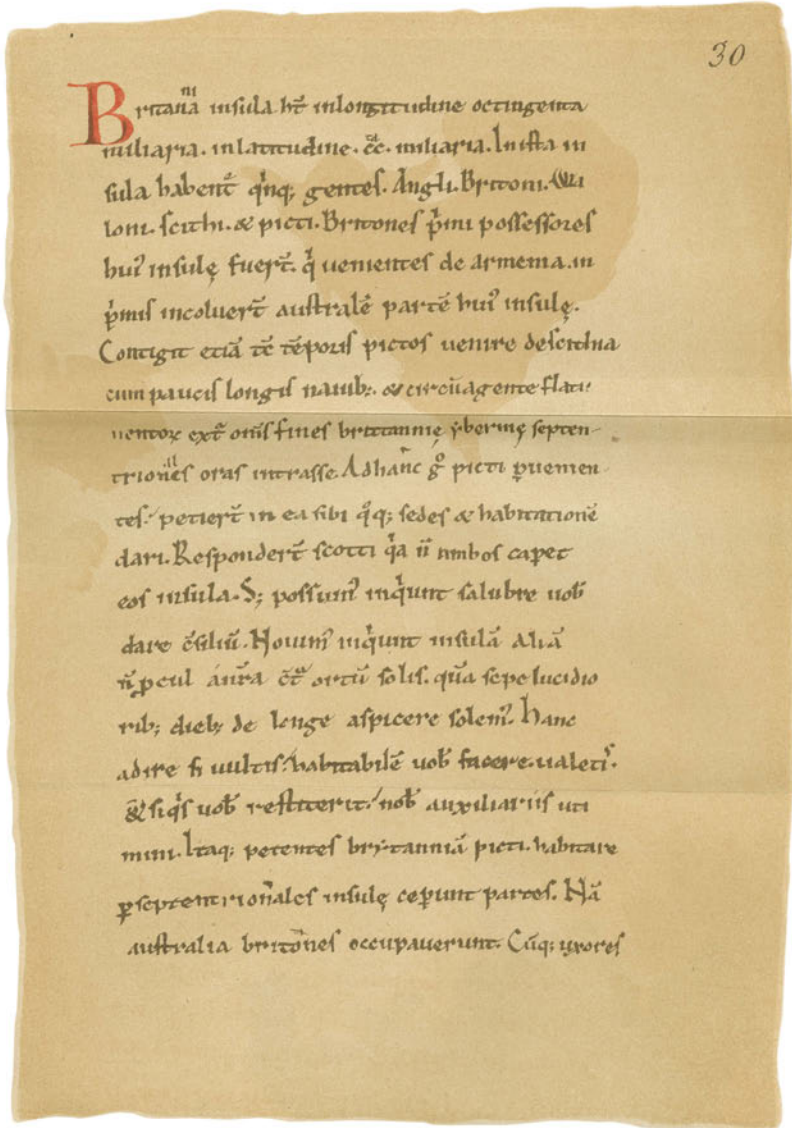 30
Britannia insula hт̄ inlongitudine octingenta
miliaria. inlatitudine. c̄c. miliaria. In ista in
sula habent̄ qⁱnq; gentes. Angli. Britoni. Wa
loni. scithi. & picti. Britones pⁱmi possessores
huiꝰ insulę fuerт̄. qⁱ uenientes de armenia. in
pⁱmis incoluerт̄ australē partē huiꝰ insulę.
Contigit etiā tc̄ tēporis pictos uenire descithia
cum paucis longis nauib;. & circūagente flatu
uentoꝝ extᵃ om̄s fines brittannię ybernię septen-
trionales oras intrasse. Adhanc gᵒ picti ꝑuenien-
tes. petierт̄ in ea sibi qᵒq; sedes & habitationē
dari. Responderт̄ scotti qⁱa n̄ ambos caperet
eos insula. S; possumꝰ inqⁱunt salubre uob̄
dare c̄siliū. Nouimꝰ inqⁱunt insulā aliā
n̄ ꝓcul anr̄a c̄tᵃ ortū solis. quā sepe lucidio
rib; dieb; de longe aspicere solemꝰ. hanc
adire si uultis. habitabilē uob̄ facere. ualetiˢ.
&siqⁱs uob̄ restiterit. nob̄ auxiliariis uti
mini. Itaq; petentes brytanniā picti. habitare
ꝑseptentrionales insulę ceperunt partes. Nā
australia britones occupauerunt. Cūq; uxores